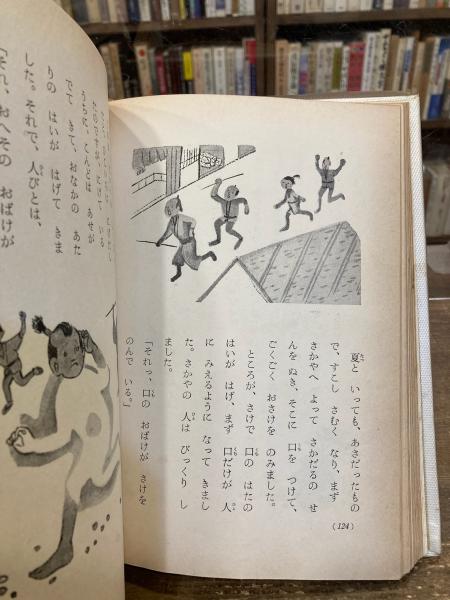 夏と いっても、あさだったもの
で、すこし さむく なり、まず
さかやへ よって さかだるの せ
んを ぬき、そこに 口を つけて、
ごくごく おさけを のみました。
ところが、さけで 口の はたの
はいが はげ、まず 口だけが 人
に みえるように なって きまし
た。さかやの 人は びっくり し
ました。
「それっ、口の おばけが さけを
のんで いる。」
(124)
たのですが、にげて いる
うちに、こんどは あせが
でて きて、おなかの あた
りの はいが はげて きま
した。それで、人びとは、
「それ、おへその おばけが